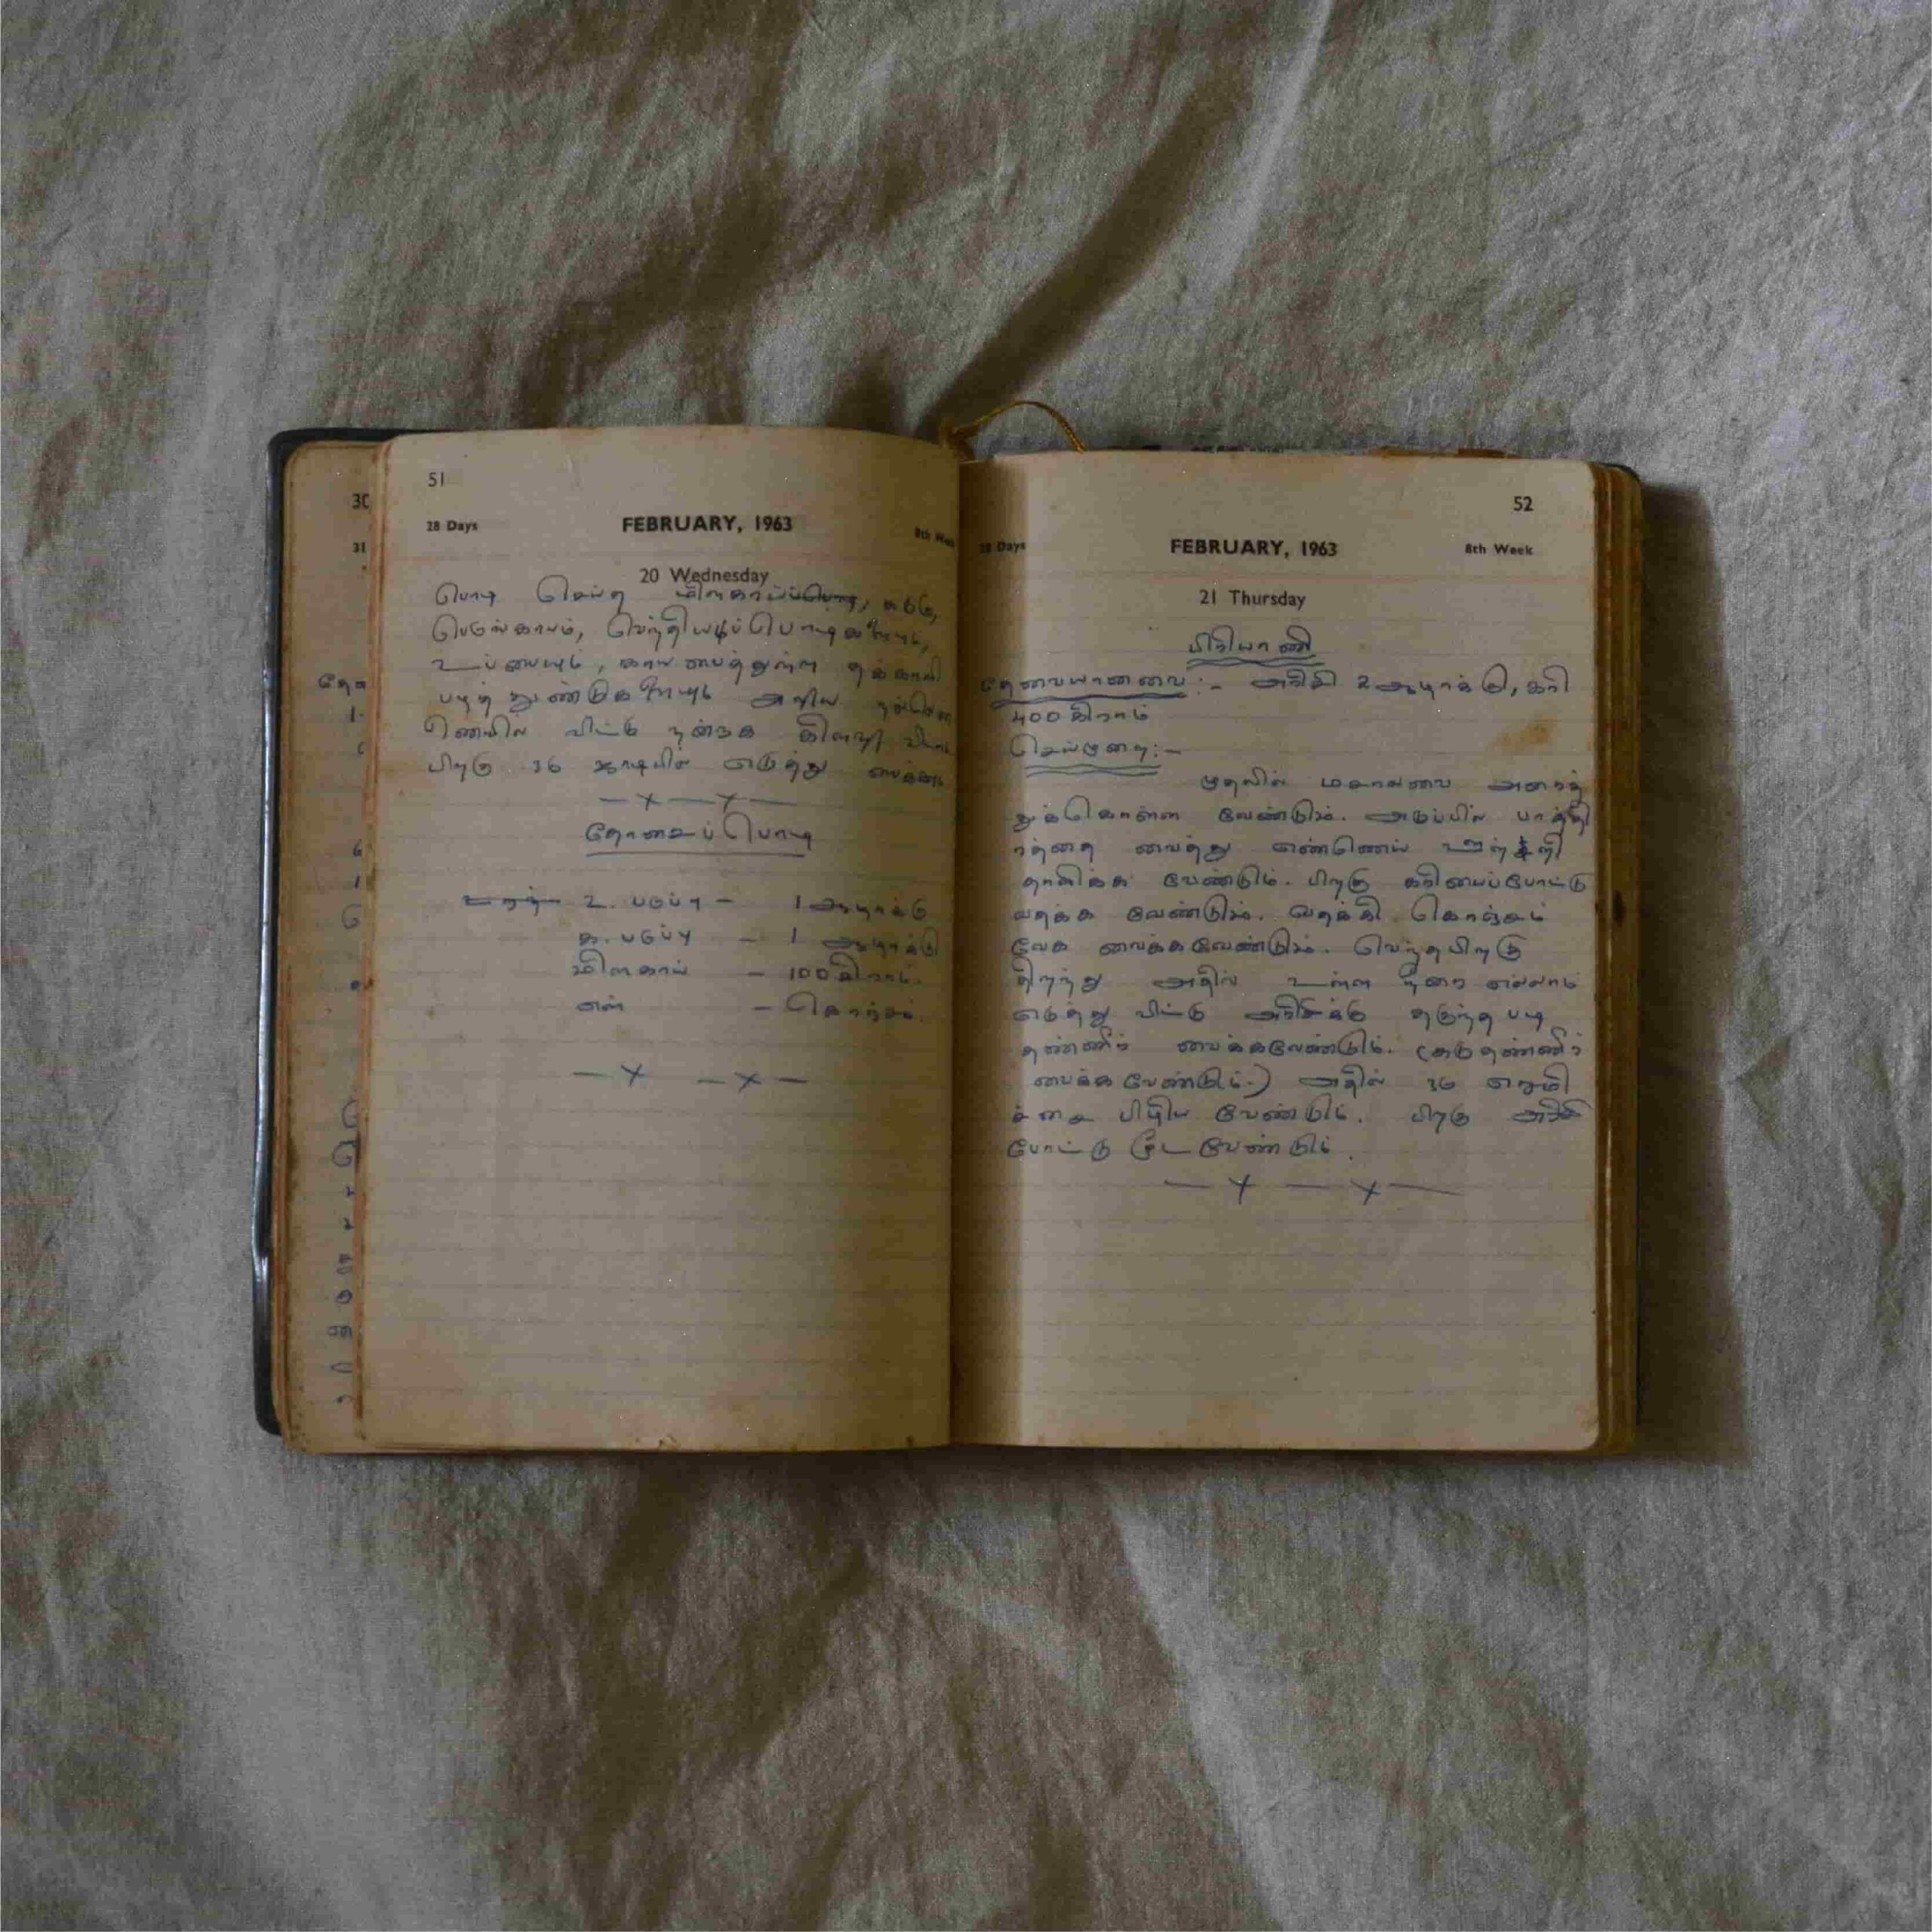 51
28 Days FEBRUARY, 1963 8th Week
20 Wednesday
பொடி செய்த மிளகாய்ப்பொடி, கடுகு,
பெருங்காயம், வெந்தியப்பொடிகளையும்,
உப்பையும், காய வைத்துள்ள தக்காளி
பழத் துண்டுகளையும் அரிய நல்லெண்
ணெயில் விட்டு நன்றாக கிளறி விடவும்
பிறகு ஒரு ஜாடியில் எடுத்து வைக்கவும்
—x——x—
தோசைப் பொடி
உ. பருப்பு – 1 ஆழாக்கு
க. பருப்பு – 1 ஆழாக்கு
மிளகாய் – 100 கிராம்.
எள் – கொஞ்சம்.
—x —x—
52
28 Days FEBRUARY, 1963 8th Week
21 Thursday
பிரியாணி
தேவையானவை:- அரிசி 2 ஆழாக்கு, கறி
400 கிராம்
செய்முறை:-
முதலில் மசாலாவை அரைத்
துக்கொள்ள வேண்டும். அடுப்பில் பாத்தி
ரத்தை வைத்து எண்ணெய் ஊற்றி
தாளிக்க வேண்டும். பிறகு கறியைப்போட்டு
வதக்க வேண்டும். வதக்கி கொஞ்சம்
வேக வைக்கவேண்டும். வெந்தபிறகு
திறந்து அதில் உள்ள நீரை எல்லாம்
எடுத்து விட்டு அரிசிக்கு தகுந்தபடி
தண்ணீர் வைக்கவேண்டும். (சுடுதண்ணீர்
வைக்க வேண்டும்.) அதில் ஒரு எலுமி
ச்சை பிழிய வேண்டும். பிறகு அரிசி
போட்டு மூட வேண்டும்.
—x——x—
30
31